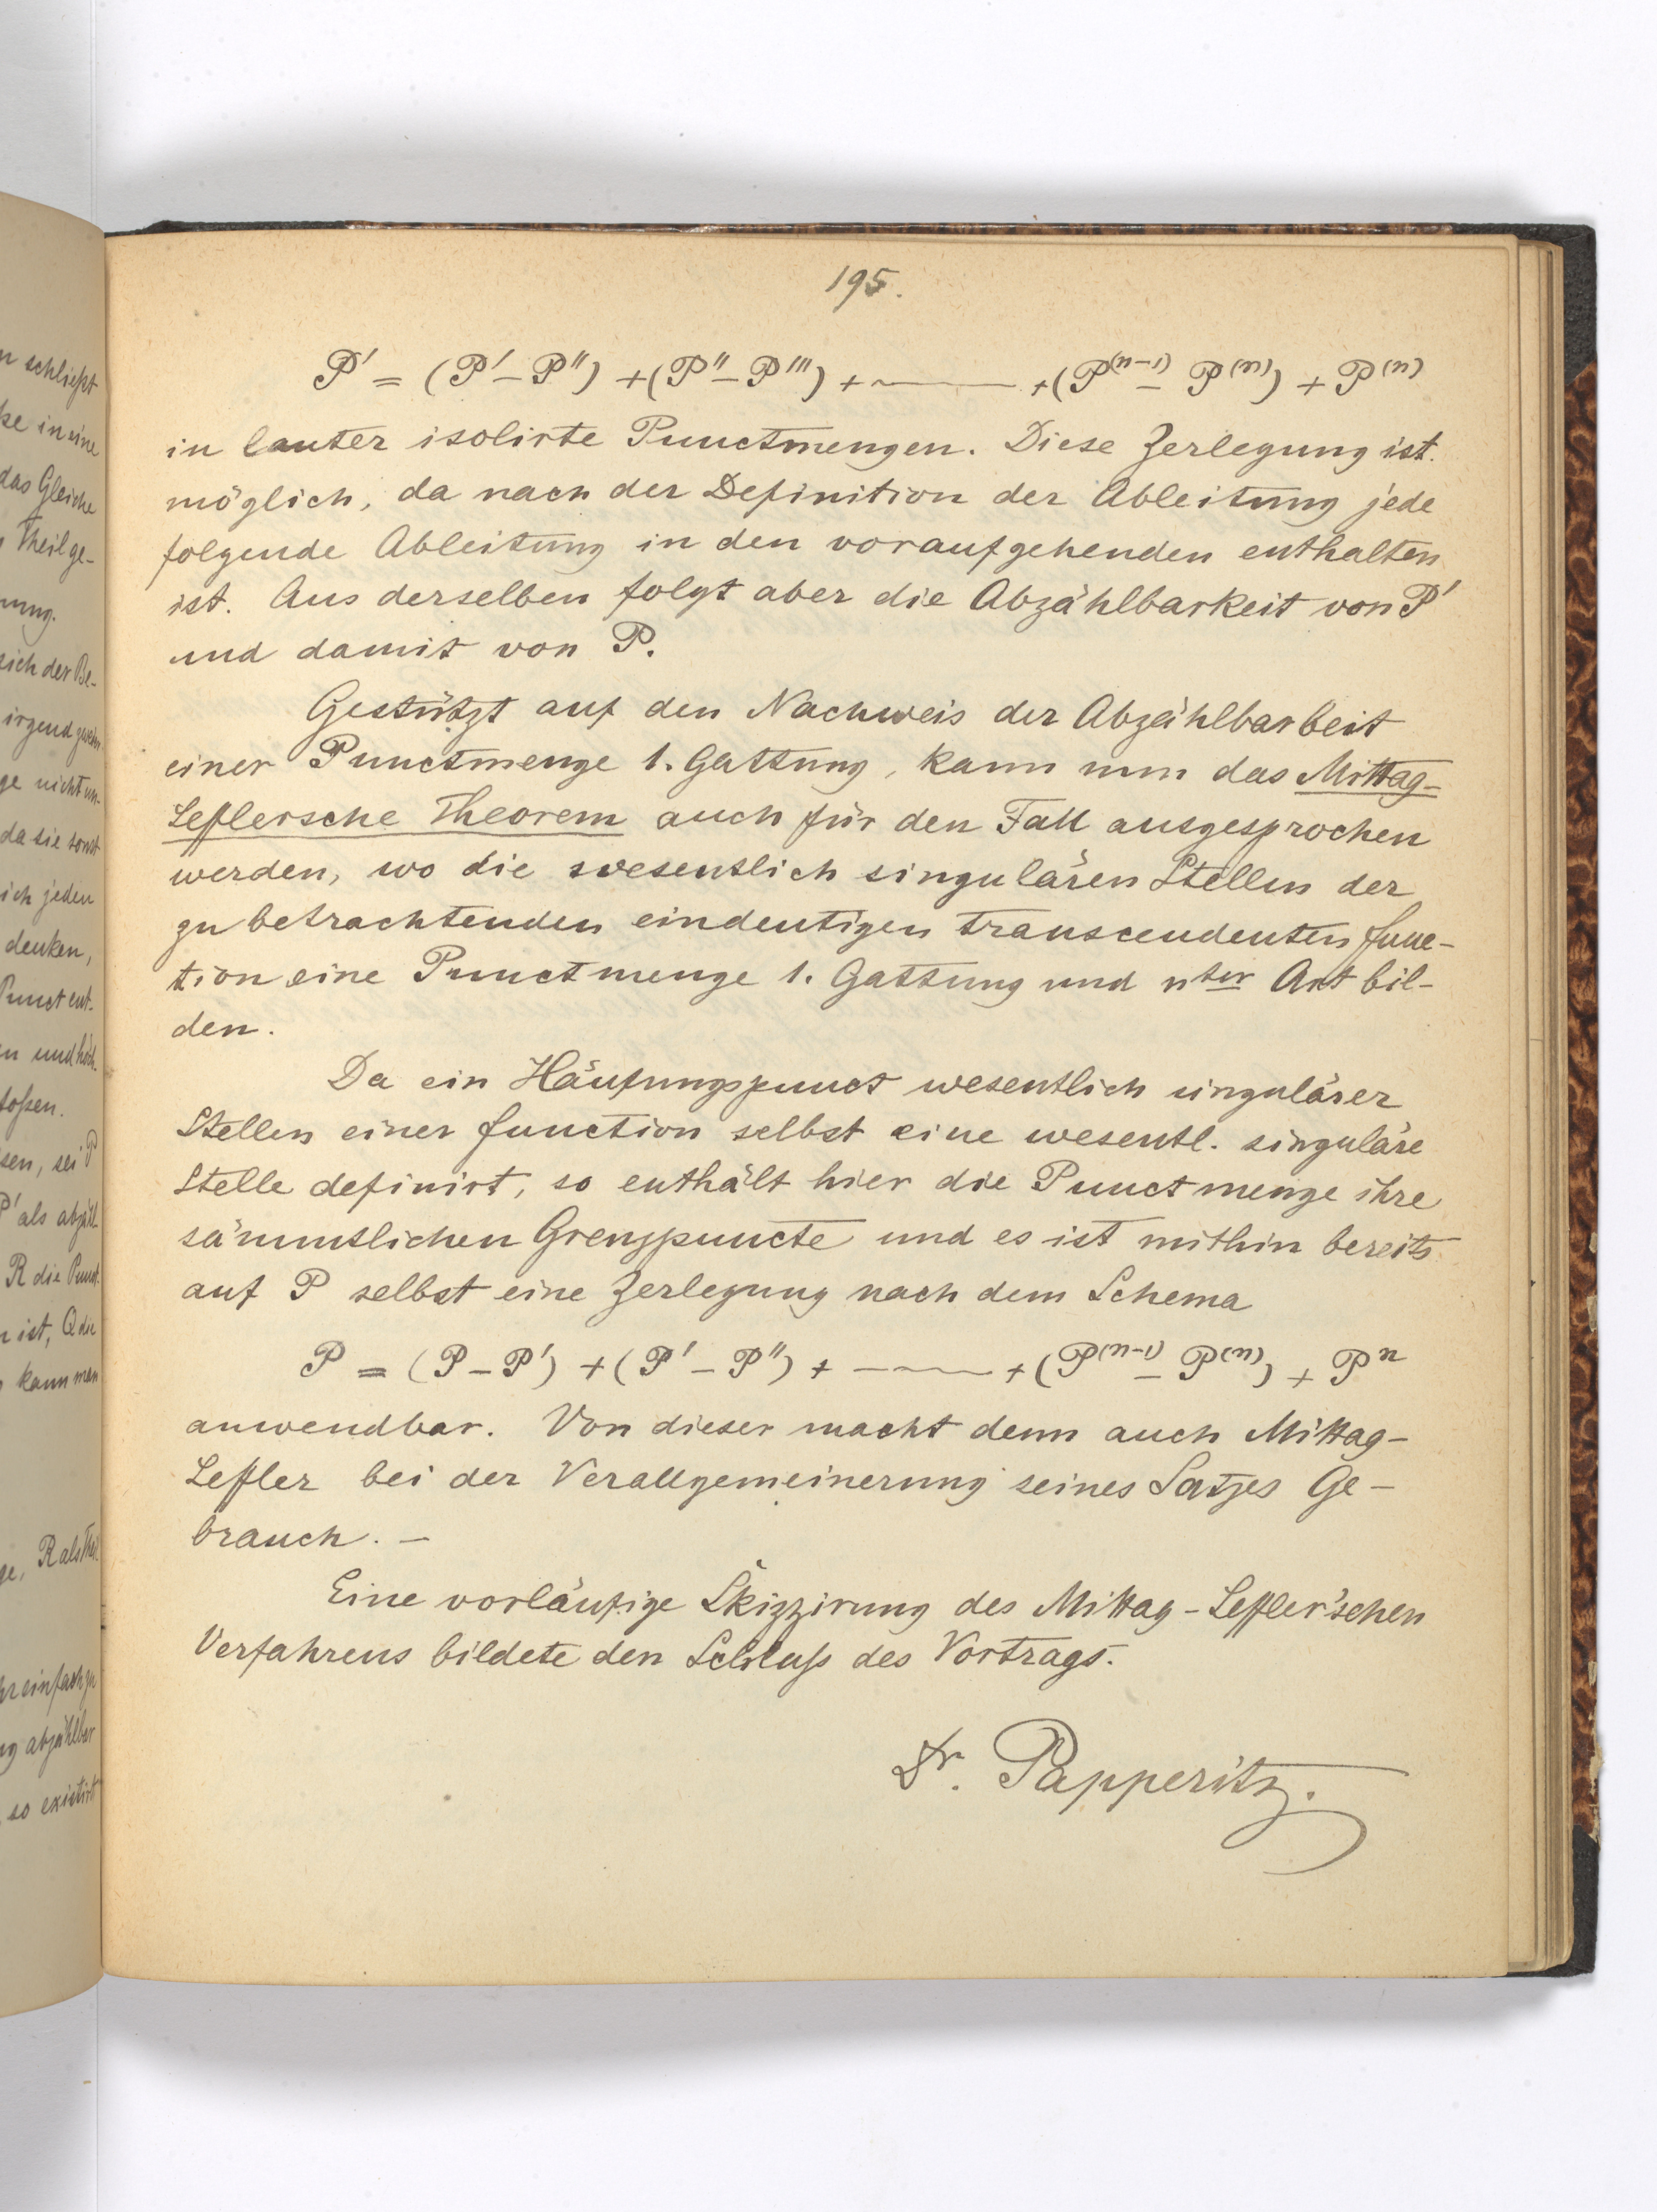 195.
P' = (P' – P'') + (P'' – P''') + ——— + (P⁽ⁿ⁻¹⁾ – P⁽ⁿ⁾) + P⁽ⁿ⁾
in lauter isolirte Punctmengen. Diese Zerlegung ist
möglich, da nach der Definition der Ableitung jede
folgende Ableitung in den voraufgehenden enthalten
ist. Aus derselben folgt aber die Abzählbarkeit von P'
und damit von P.
Gestützt auf den Nachweis der Abzählbarkeit
einer Punctmenge 1. Gattung, kann nun das Mittag-
Leflersche Theorem auch für den Fall ausgesprochen
werden, wo die wesentlich singulären Stellen der
zu betrachtenden eindeutigen transcendenten func-
tion eine Punctmenge 1. Gattung und nter Art bil-
den.
Da ein Häufungspunct wesentlich singulärer
Stellen einer function selbst eine wesentl. singuläre
Stelle definirt, so enthält hier die Punctmenge ihre
sämmtlichen Grenzpuncte und es ist mithin bereits
auf P selbst eine Zerlegung nach dem Schema
P = (P – P') + (P' – P'') + ——— + (P⁽ⁿ⁻¹⁾ – P⁽ⁿ⁾) + Pⁿ
anwendbar. Von dieser macht denn auch Mittag-
Lefler bei der Verallgemeinerung seines Satzes Ge-
brauch. –
Eine vorläufige Skizzirung des Mittag-Lefler'schen
Verfahrens bildete den Schluß des Vortrags.
Dr. Papperitz.
n schließt
in eine
das Gleiche
Theil ge-
sich der Be-
irgend
ge nicht un-
da sie sonst
ich jeden
denken,
Punct ent-
en und
sen, sei P
P' als abzähl-
R die Punct-
ist, Q die
kann man
ge, R als
einfach zu
abzählbar
so existirt